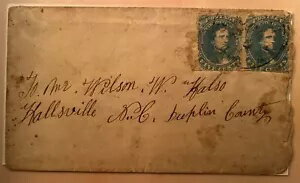 To Mr. Wilson. W. Halso
Hallsville N.C. Duplin County